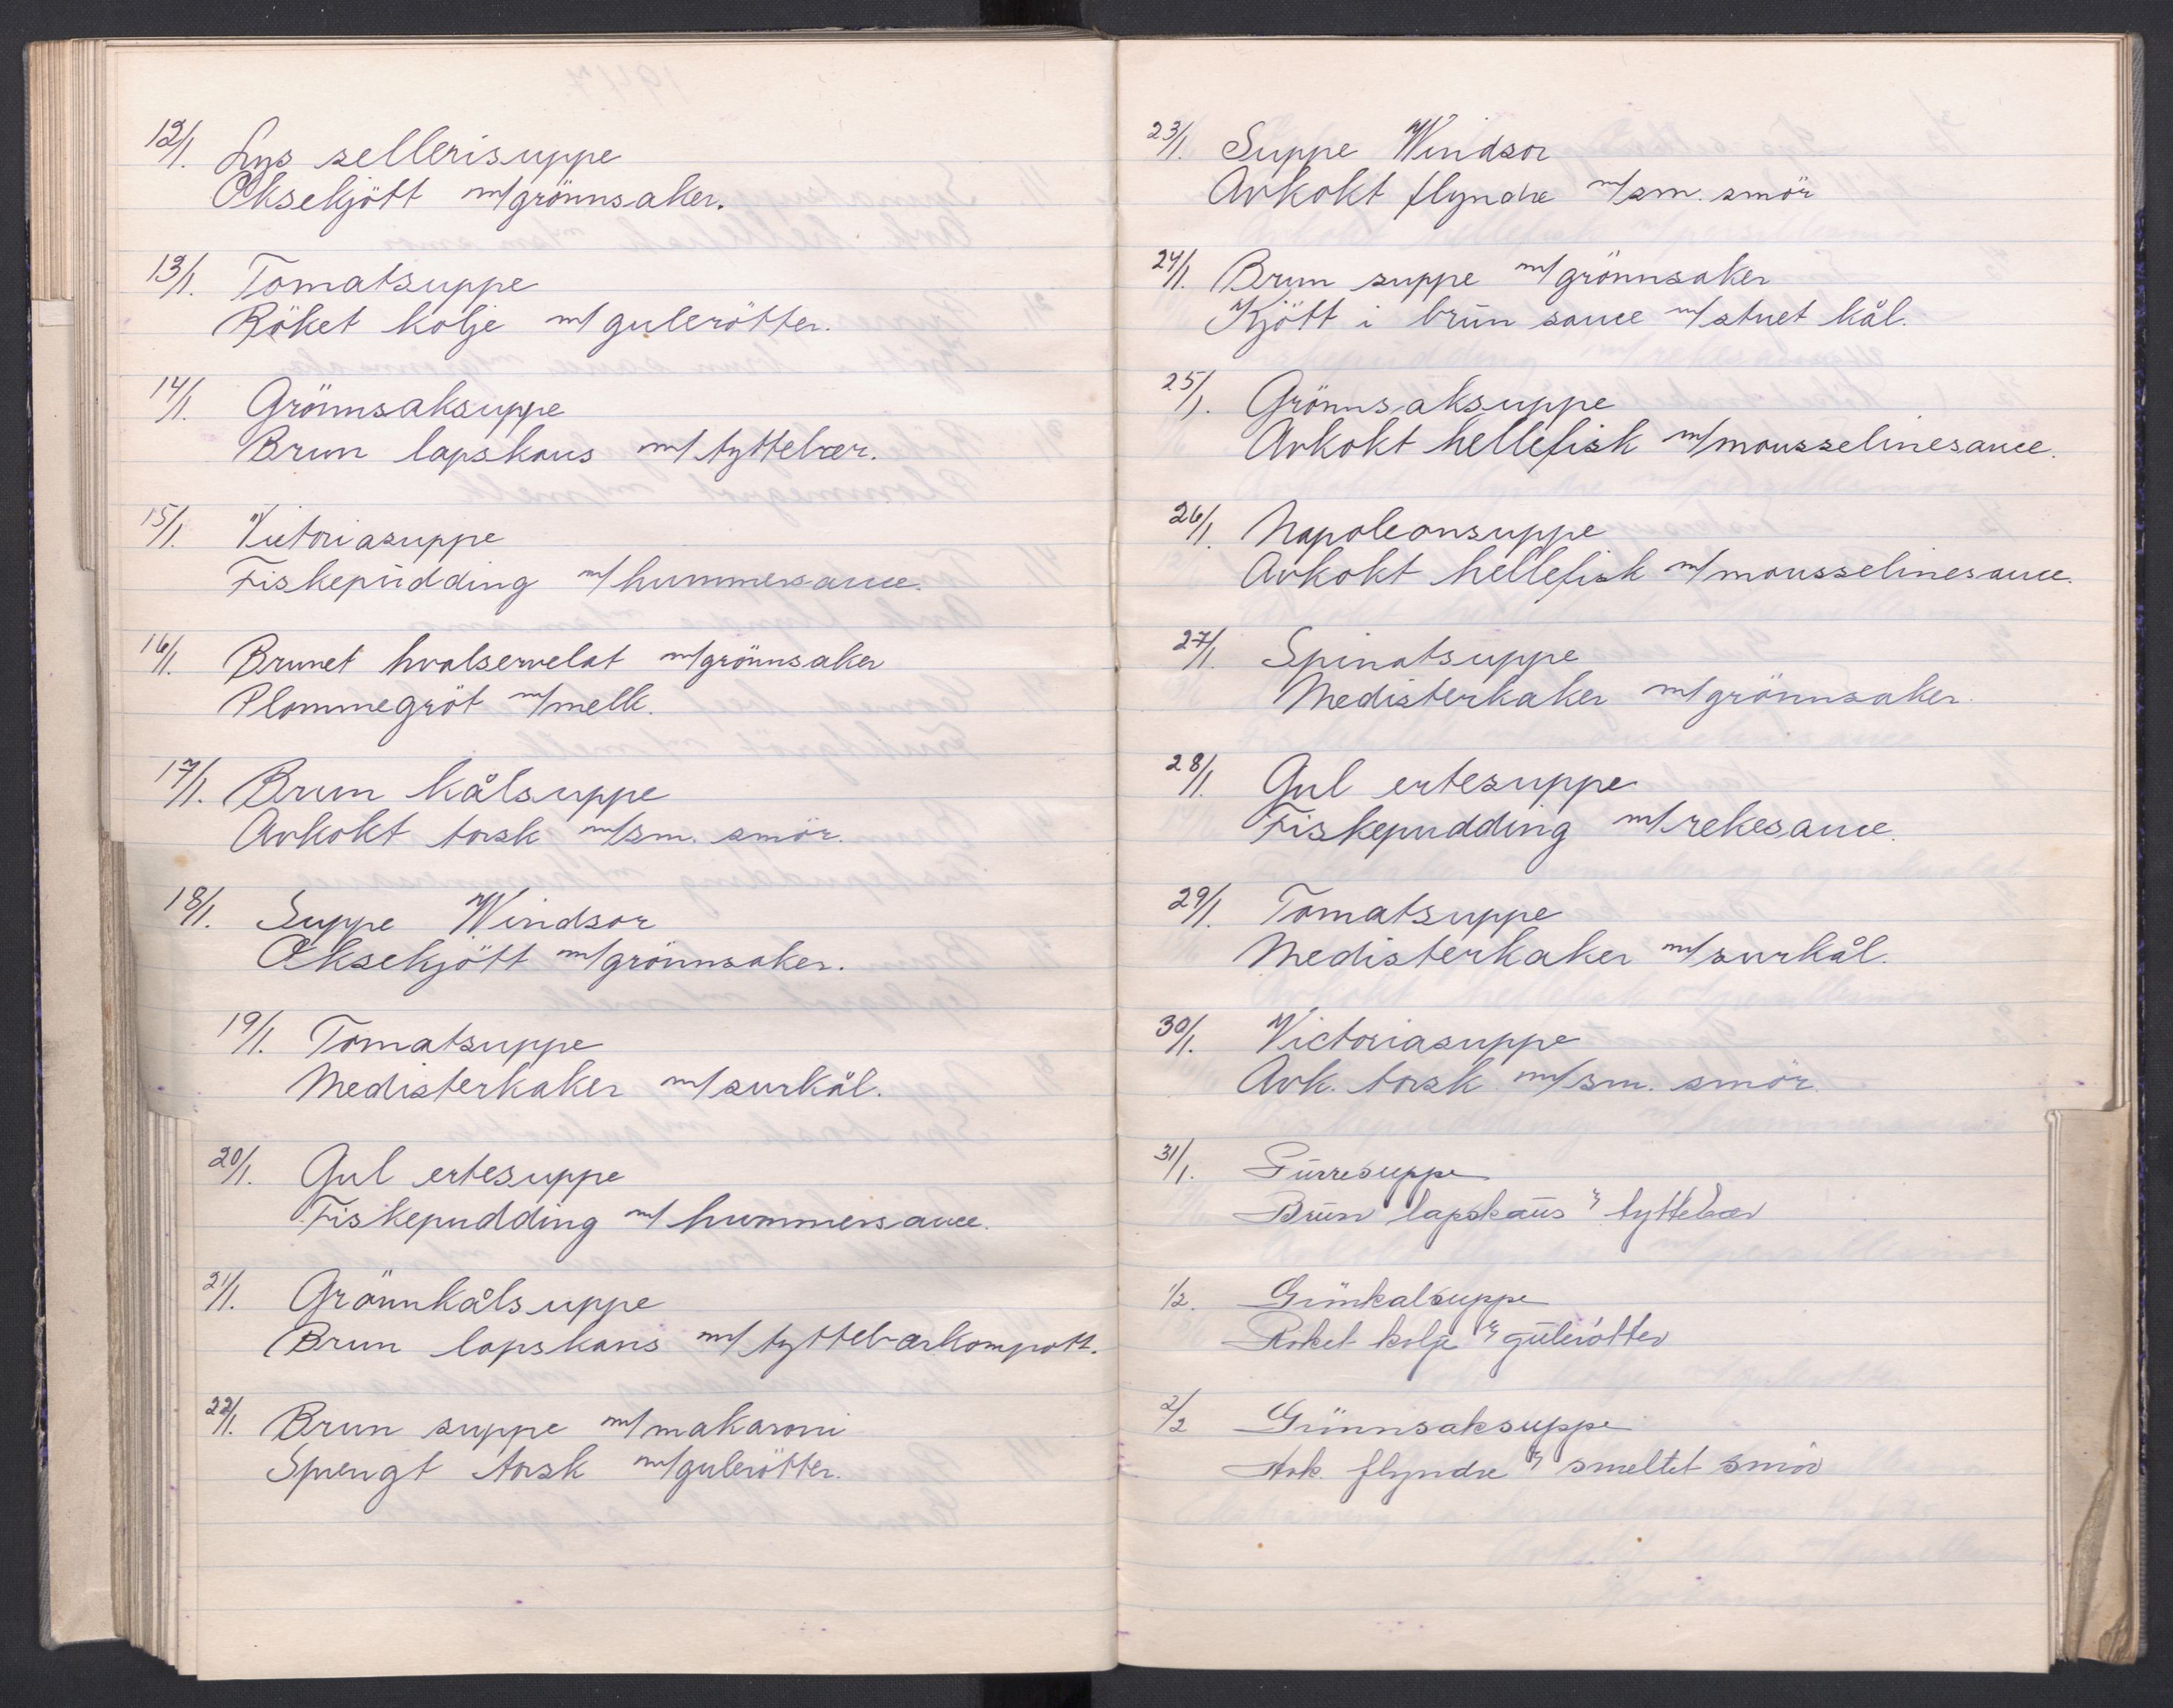 12/1. Lys sellerisuppe
Oksekjött m/grönnsaker.
13/1. Tomatsuppe
Röket kolje m/gulerötter.
14/1. Grönnsaksuppe
Brun lapskaus m/tyttebær.
15/1. Victoriasuppe
Fiskepudding m/hummersauce.
16/1. Brunet hvalservelat m/grönnsaker
Plommegröt m/melk.
17/1. Brun kålsuppe
Avkokt torsk m/sm. smör.
18/1. Suppe Windsor
Oksekjött m/grönnsaker.
19/1. Tomatsuppe
Medisterkaker m/surkål.
20/1. Gul ertesuppe
Fiskepudding m/hummersauce.
21/1. Grönnkålsuppe
Brun lapskaus m/tyttebærkompott.
22/1. Brun suppe m/makaroni
Sprengt torsk m/gulerötter.
23/1. Suppe Windsor
Avkokt flyndre m/sm. smör
24/1. Brun suppe m/grönnsaker
Kjött i brun sauce m/stuet kål.
25/1. Grönnsaksuppe
Avkokt hellefisk m/mousselinesauce.
26/1. Napoleonsuppe
Avkokt hellefisk m/mousselinesauce.
27/1. Spinatsuppe
Medisterkaker m/grönnsaker.
28/1. Gul ertesuppe
Fiskepudding m/rekesauce.
29/1. Tomatsuppe
Medisterkaker m/surkål.
30/1. Victoriasuppe
Avk. torsk m/sm. smör.
31/1. Purresuppe
Brun lapskaus m/ tyttebær
1/2. Grönkalsuppe
Röket kolje m/ gulerötter
2/2 Grönnsaksuppe
Avk. flyndre m/ smeltet smör